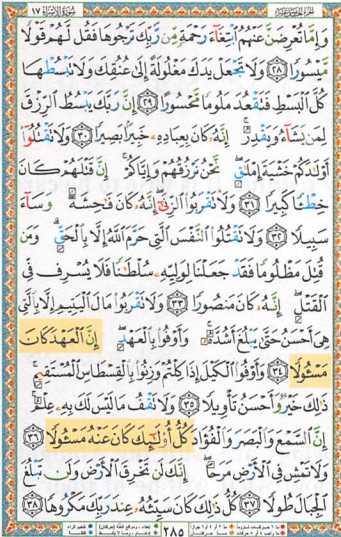 ١٧ سورة الإسراء الجزء الخامس عشر
وَإِمَّا تُعْرِضَنَّ عَنْهُمُ ٱبْتِغَآءَ رَحْمَةٍ مِّن رَّبِّكَ تَرْجُوهَا فَقُل لَّهُمْ قَوْلًا
مَّيْسُورًا ٢٨ وَلَا تَجْعَلْ يَدَكَ مَغْلُولَةً إِلَىٰ عُنُقِكَ وَلَا تَبْسُطْهَا
كُلَّ ٱلْبَسْطِ فَتَقْعُدَ مَلُومًا مَّحْسُورًا ٢٩ إِنَّ رَبَّكَ يَبْسُطُ ٱلرِّزْقَ
لِمَن يَشَآءُ وَيَقْدِرُ إِنَّهُۥ كَانَ بِعِبَادِهِۦ خَبِيرًۢا بَصِيرًا ٣٠ وَلَا تَقْتُلُوٓا۟
أَوْلَٰدَكُمْ خَشْيَةَ إِمْلَٰقٍ نَّحْنُ نَرْزُقُهُمْ وَإِيَّاكُمْ إِنَّ قَتْلَهُمْ كَانَ
خِطْـًٔا كَبِيرًا ٣١ وَلَا تَقْرَبُوا۟ ٱلزِّنَىٰٓ إِنَّهُۥ كَانَ فَٰحِشَةً وَسَآءَ
سَبِيلًا ٣٢ وَلَا تَقْتُلُوا۟ ٱلنَّفْسَ ٱلَّتِى حَرَّمَ ٱللَّهُ إِلَّا بِٱلْحَقِّ وَمَن
قُتِلَ مَظْلُومًا فَقَدْ جَعَلْنَا لِوَلِيِّهِۦ سُلْطَٰنًا فَلَا يُسْرِف فِّى
ٱلْقَتْلِ إِنَّهُۥ كَانَ مَنصُورًا ٣٣ وَلَا تَقْرَبُوا۟ مَالَ ٱلْيَتِيمِ إِلَّا بِٱلَّتِى
هِىَ أَحْسَنُ حَتَّىٰ يَبْلُغَ أَشُدَّهُۥ وَأَوْفُوا۟ بِٱلْعَهْدِ إِنَّ ٱلْعَهْدَ كَانَ
مَسْـُٔولًا ٣٤ وَأَوْفُوا۟ ٱلْكَيْلَ إِذَا كِلْتُمْ وَزِنُوا۟ بِٱلْقِسْطَاسِ ٱلْمُسْتَقِيمِ
ذَٰلِكَ خَيْرٌ وَأَحْسَنُ تَأْوِيلًا ٣٥ وَلَا تَقْفُ مَا لَيْسَ لَكَ بِهِۦ عِلْمٌ
إِنَّ ٱلسَّمْعَ وَٱلْبَصَرَ وَٱلْفُؤَادَ كُلُّ أُو۟لَٰٓئِكَ كَانَ عَنْهُ مَسْـُٔولًا ٣٦
وَلَا تَمْشِ فِى ٱلْأَرْضِ مَرَحًا إِنَّكَ لَن تَخْرِقَ ٱلْأَرْضَ وَلَن تَبْلُغَ
ٱلْجِبَالَ طُولًا ٣٧ كُلُّ ذَٰلِكَ كَانَ سَيِّئُهُۥ عِندَ رَبِّكَ مَكْرُوهًا ٣٨
٢٨٥